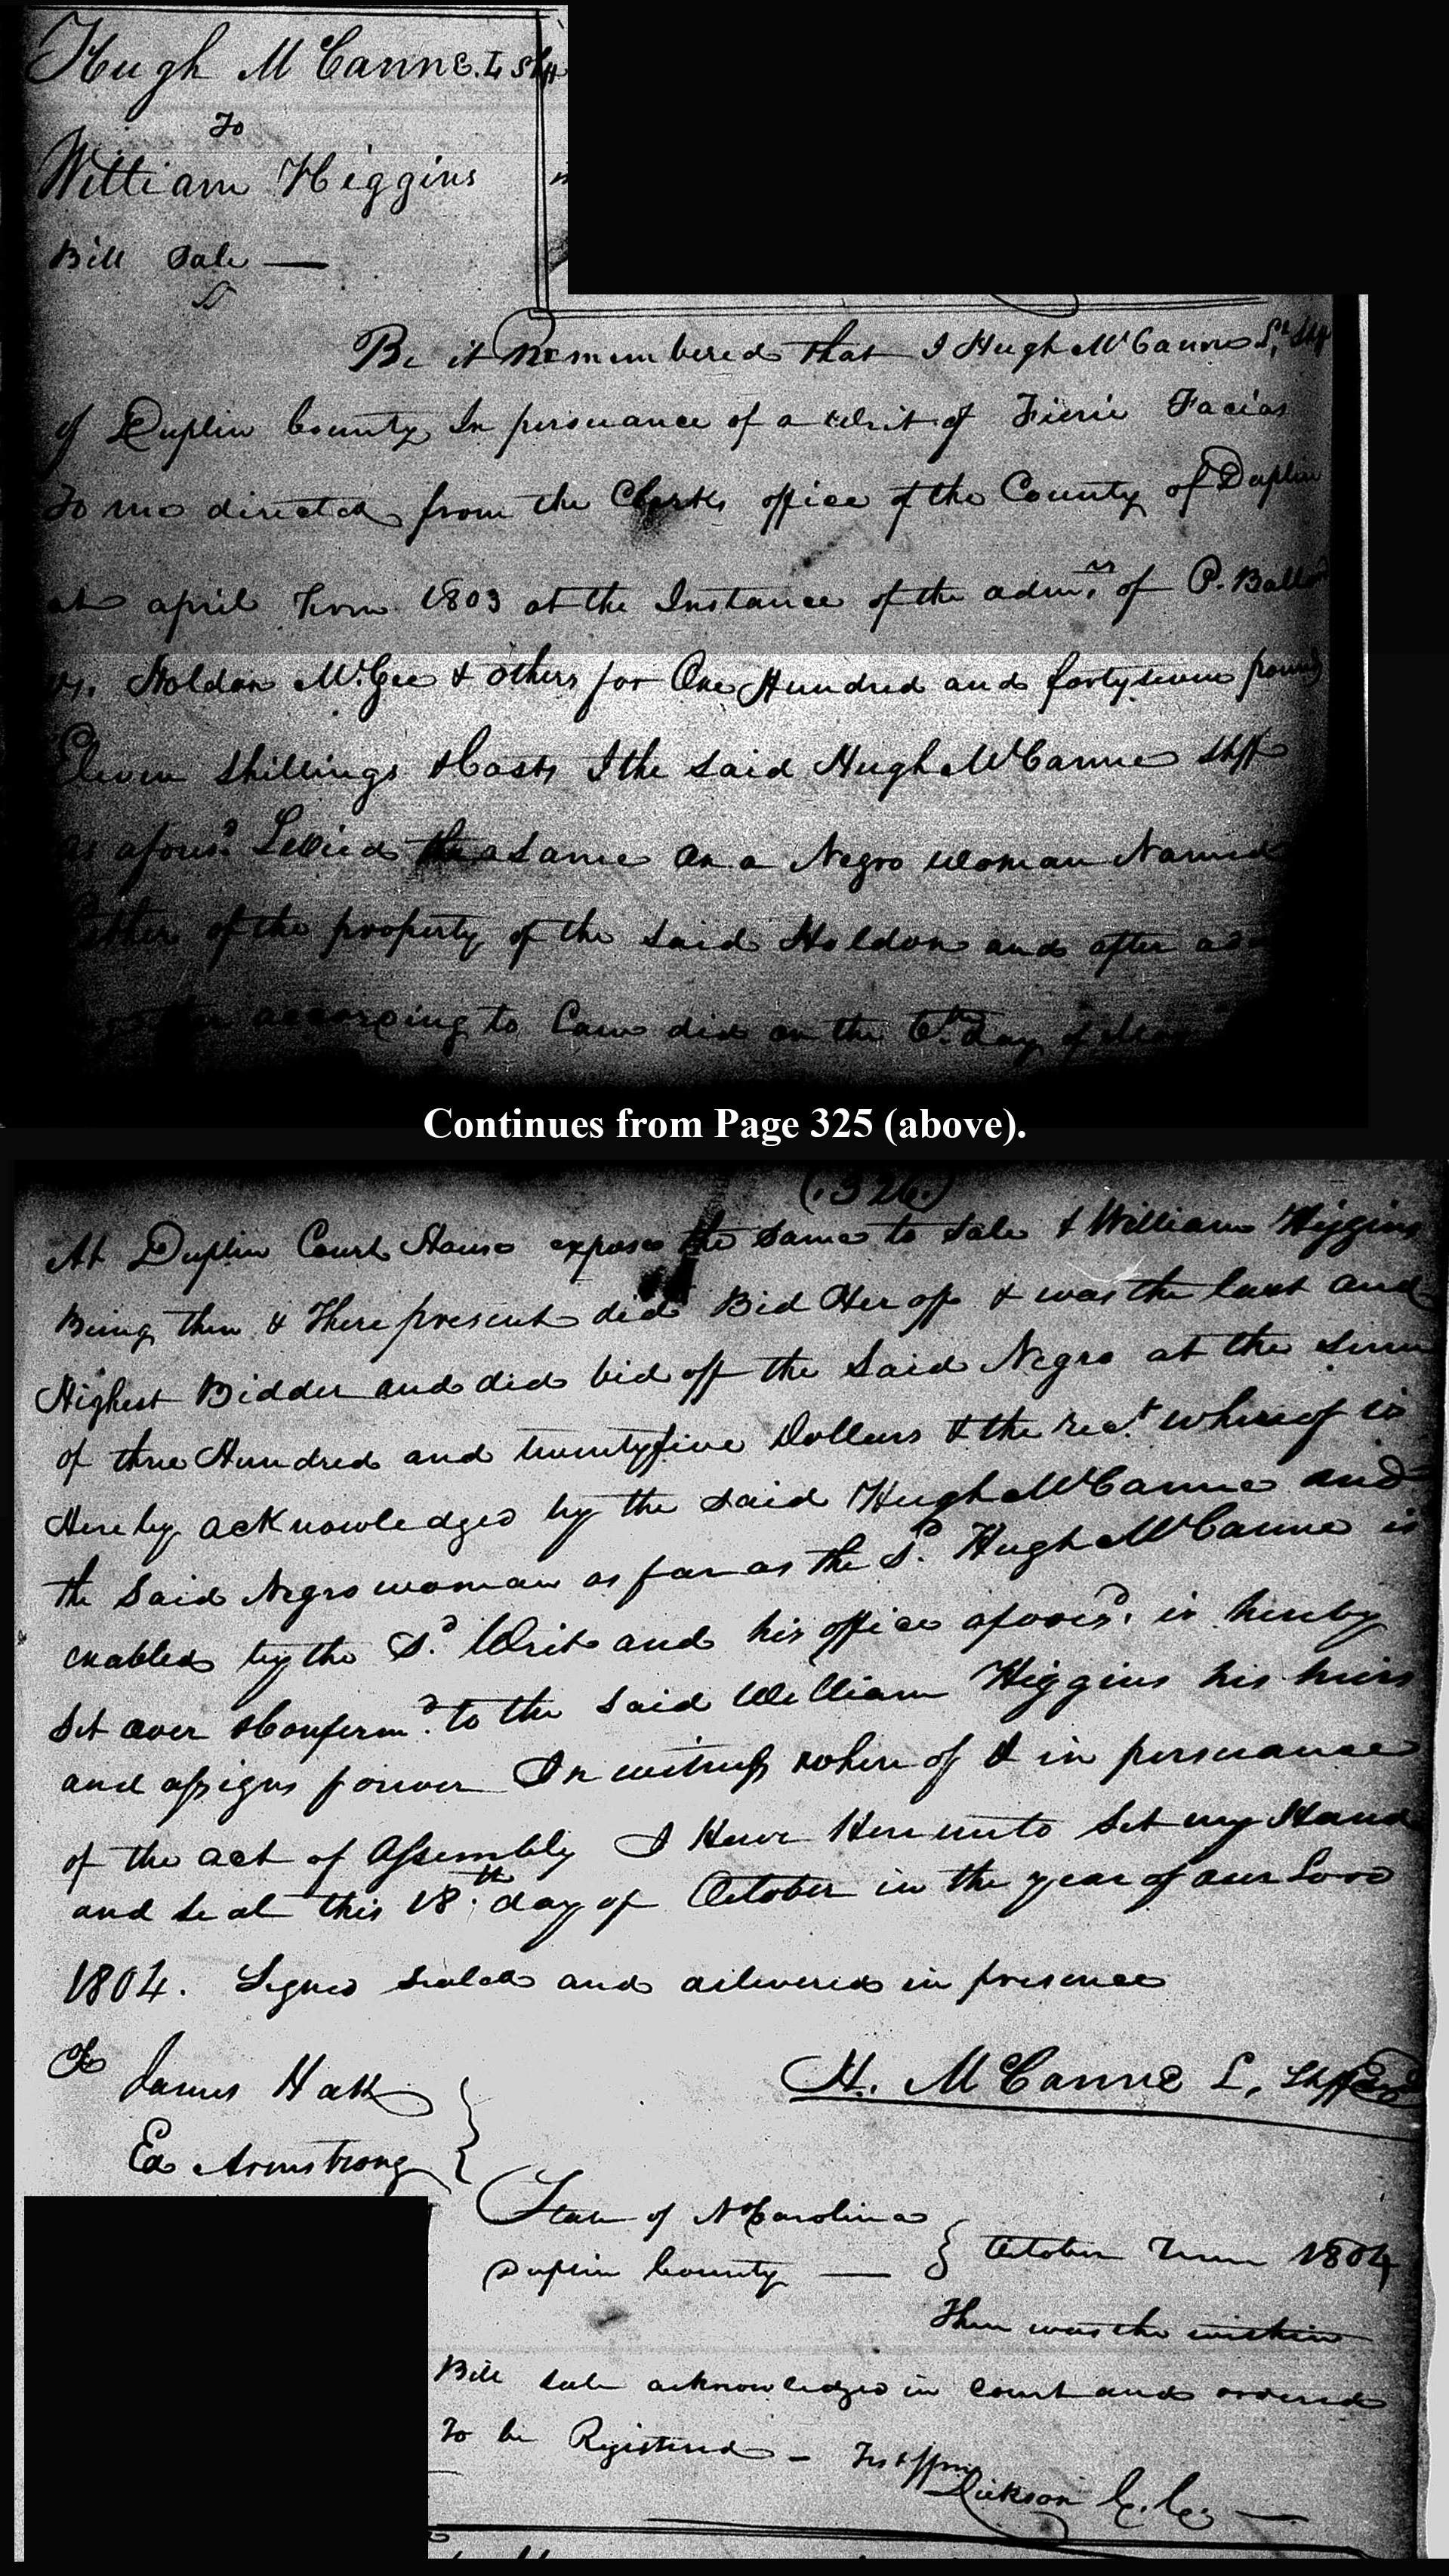 Hugh McCanne. L Shff
To
William Higgins
Bill Sale —
Be it Remembered that I Hugh McCanne Lt. Shff
of Duplin County In persuance of a Writ of Fierie Facias
To me directed from the Clerks office of the County of Duplin
at april Term 1803 at the Instance of the admrs. of P. Ballard
vs. Holdon McGee & others for One Hundred and fortyseven pounds
Eleven Shillings & Costs I the Said Hugh McCanne Shff
as afors.d Levied the Same on a Negro Woman Named
Esther of the property of the Said Holdon and after
according to Law did on the 6th. Day of
Continues from Page 325 (above).
(.326.)
At Duplin Court House expose the Same to Sale & William Higgins
Being then & There present did Bid Her off & was the last and
Highest Bidder and did bid off the Said Negro at the Sum
of three Hundred and twentyfive Dollars & the rect. whereof is
Hereby acknowledged by the Said Hugh McCanne and
the Said Negro woman as far as the Sd. Hugh McCanne is
enabled by the Sd. Writ and his office aforesd. is hereby
Set over & Conferm.d to the Said William Higgins his heirs
and assigns forever In witness where of & in persuance
of the act of Assembly I Have Here unto Set my Hand
and Seal this 18.th day of October in the year of our Lord
1804. Signed Sealed and delivered in presence
of James Hall
H. McCanne L, Shff Seal
Ed Armstrong
State of N Carolina
Duplin County — } October Term 1804
Then was the within
Bill Sale acknowledged in Court and ordered
To be Registered —
Dickson C. C. —